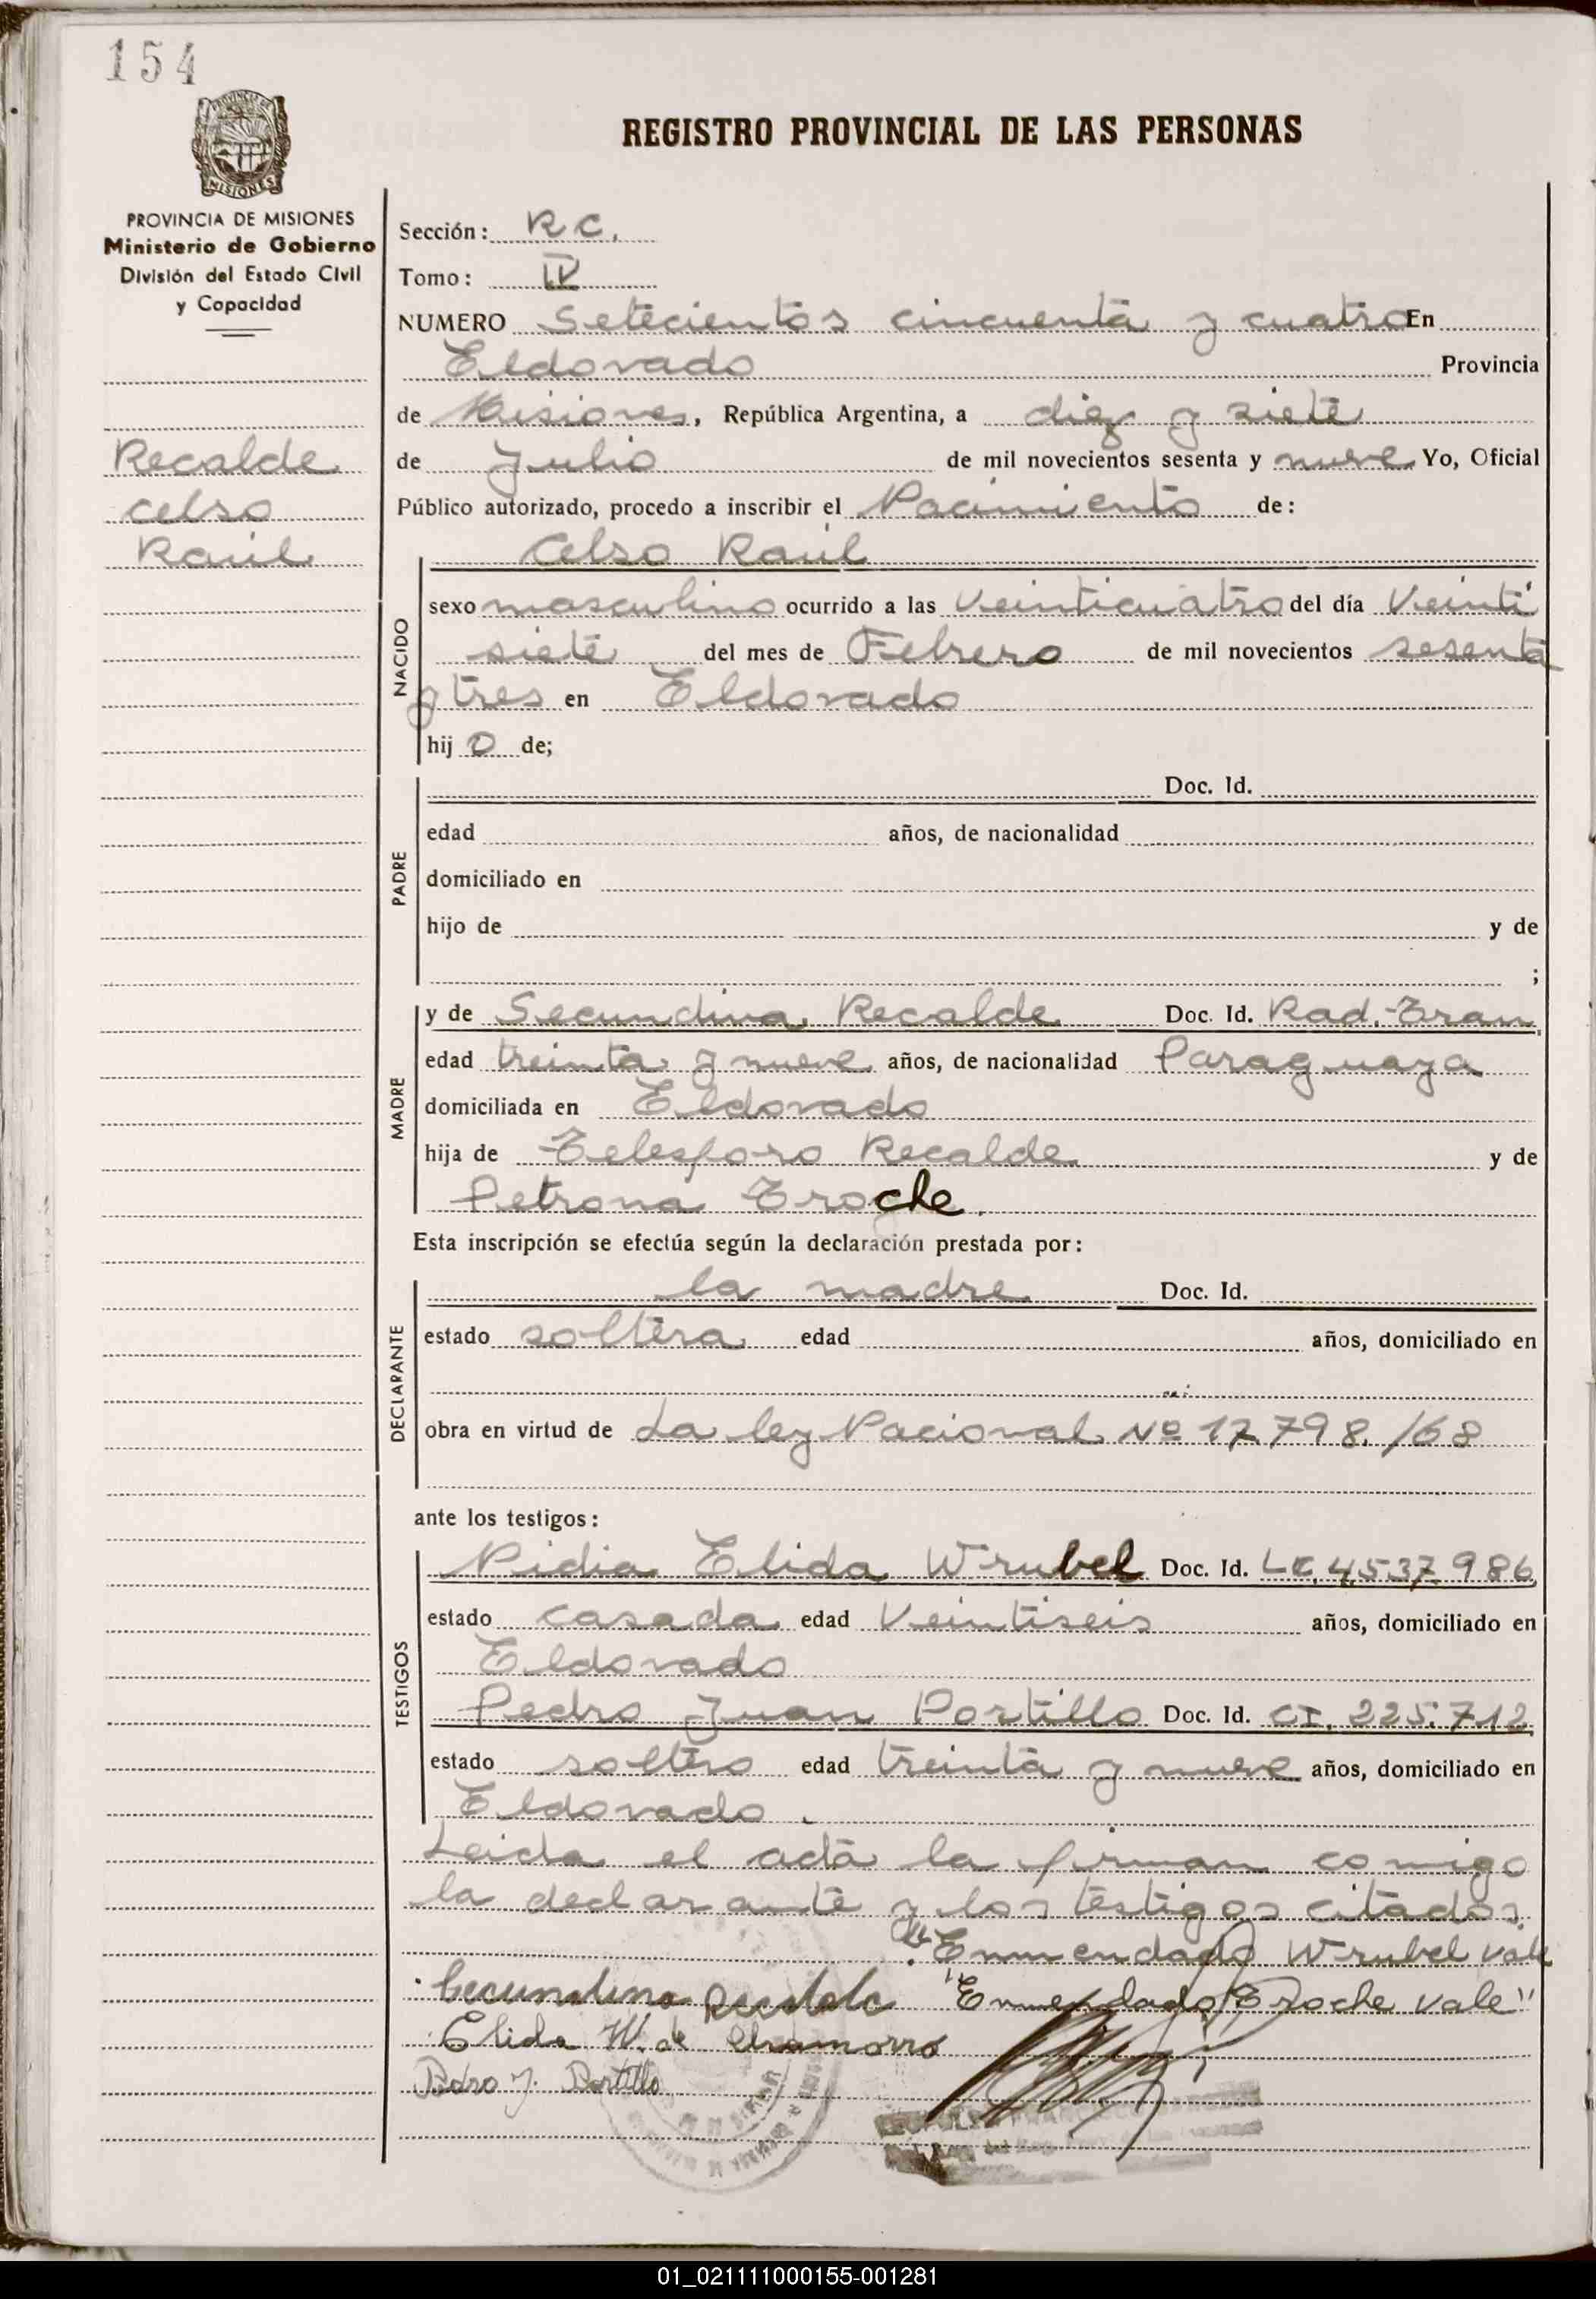 154
REGISTRO PROVINCIAL DE LAS PERSONAS
PROVINCIA DE MISIONES
Ministerio de Gobierno
División del Estado Civil
y Capacidad
Recalde
Celso
Raúl
Sección: R C.
Tomo: IV
NUMERO Setecientos cincuenta y cuatro En
Eldorado Provincia
de Misiones, República Argentina, a diez y siete
de Julio de mil novecientos sesenta y nueve Yo, Oficial
Público autorizado, procedo a inscribir el Nacimiento de:
Celso Raúl
NACIDO
sexo masculino ocurrido a las veinticuatro del día Veinti
siete del mes de Febrero de mil novecientos sesenta
y tres en Eldorado
hij o de;
PADRE
Doc. Id.
edad años, de nacionalidad
domiciliado en
hijo de y de
;
MADRE
y de Secundina Recalde Doc. Id. Rad. Tran.
edad treinta y nueve años, de nacionalidad Paraguaya
domiciliada en Eldorado
hija de Telesforo Recalde y de
Petrona Troche.
Esta inscripción se efectúa según la declaración prestada por:
DECLARANTE
la madre Doc. Id.
estado soltera edad años, domiciliado en
obra en virtud de La ley Nacional Nº 17.798./68
ante los testigos:
TESTIGOS
Nidia Elida Wrubel Doc. Id. LC. 4.537.986
estado casada edad Veintiseis años, domiciliado en
Eldorado
Pedro Juan Portillo Doc. Id. CI. 225.712
estado soltero edad treinta y nueve años, domiciliado en
Eldorado.
Leida el acta la firman comigo
la declarante y los testigos citados.
"Enmendado Wrubel vale
Secundina Recalde "Enmendado Troche vale"
Elida W. de Chamorro
Pedro J. Portillo
01_021111000155-001281